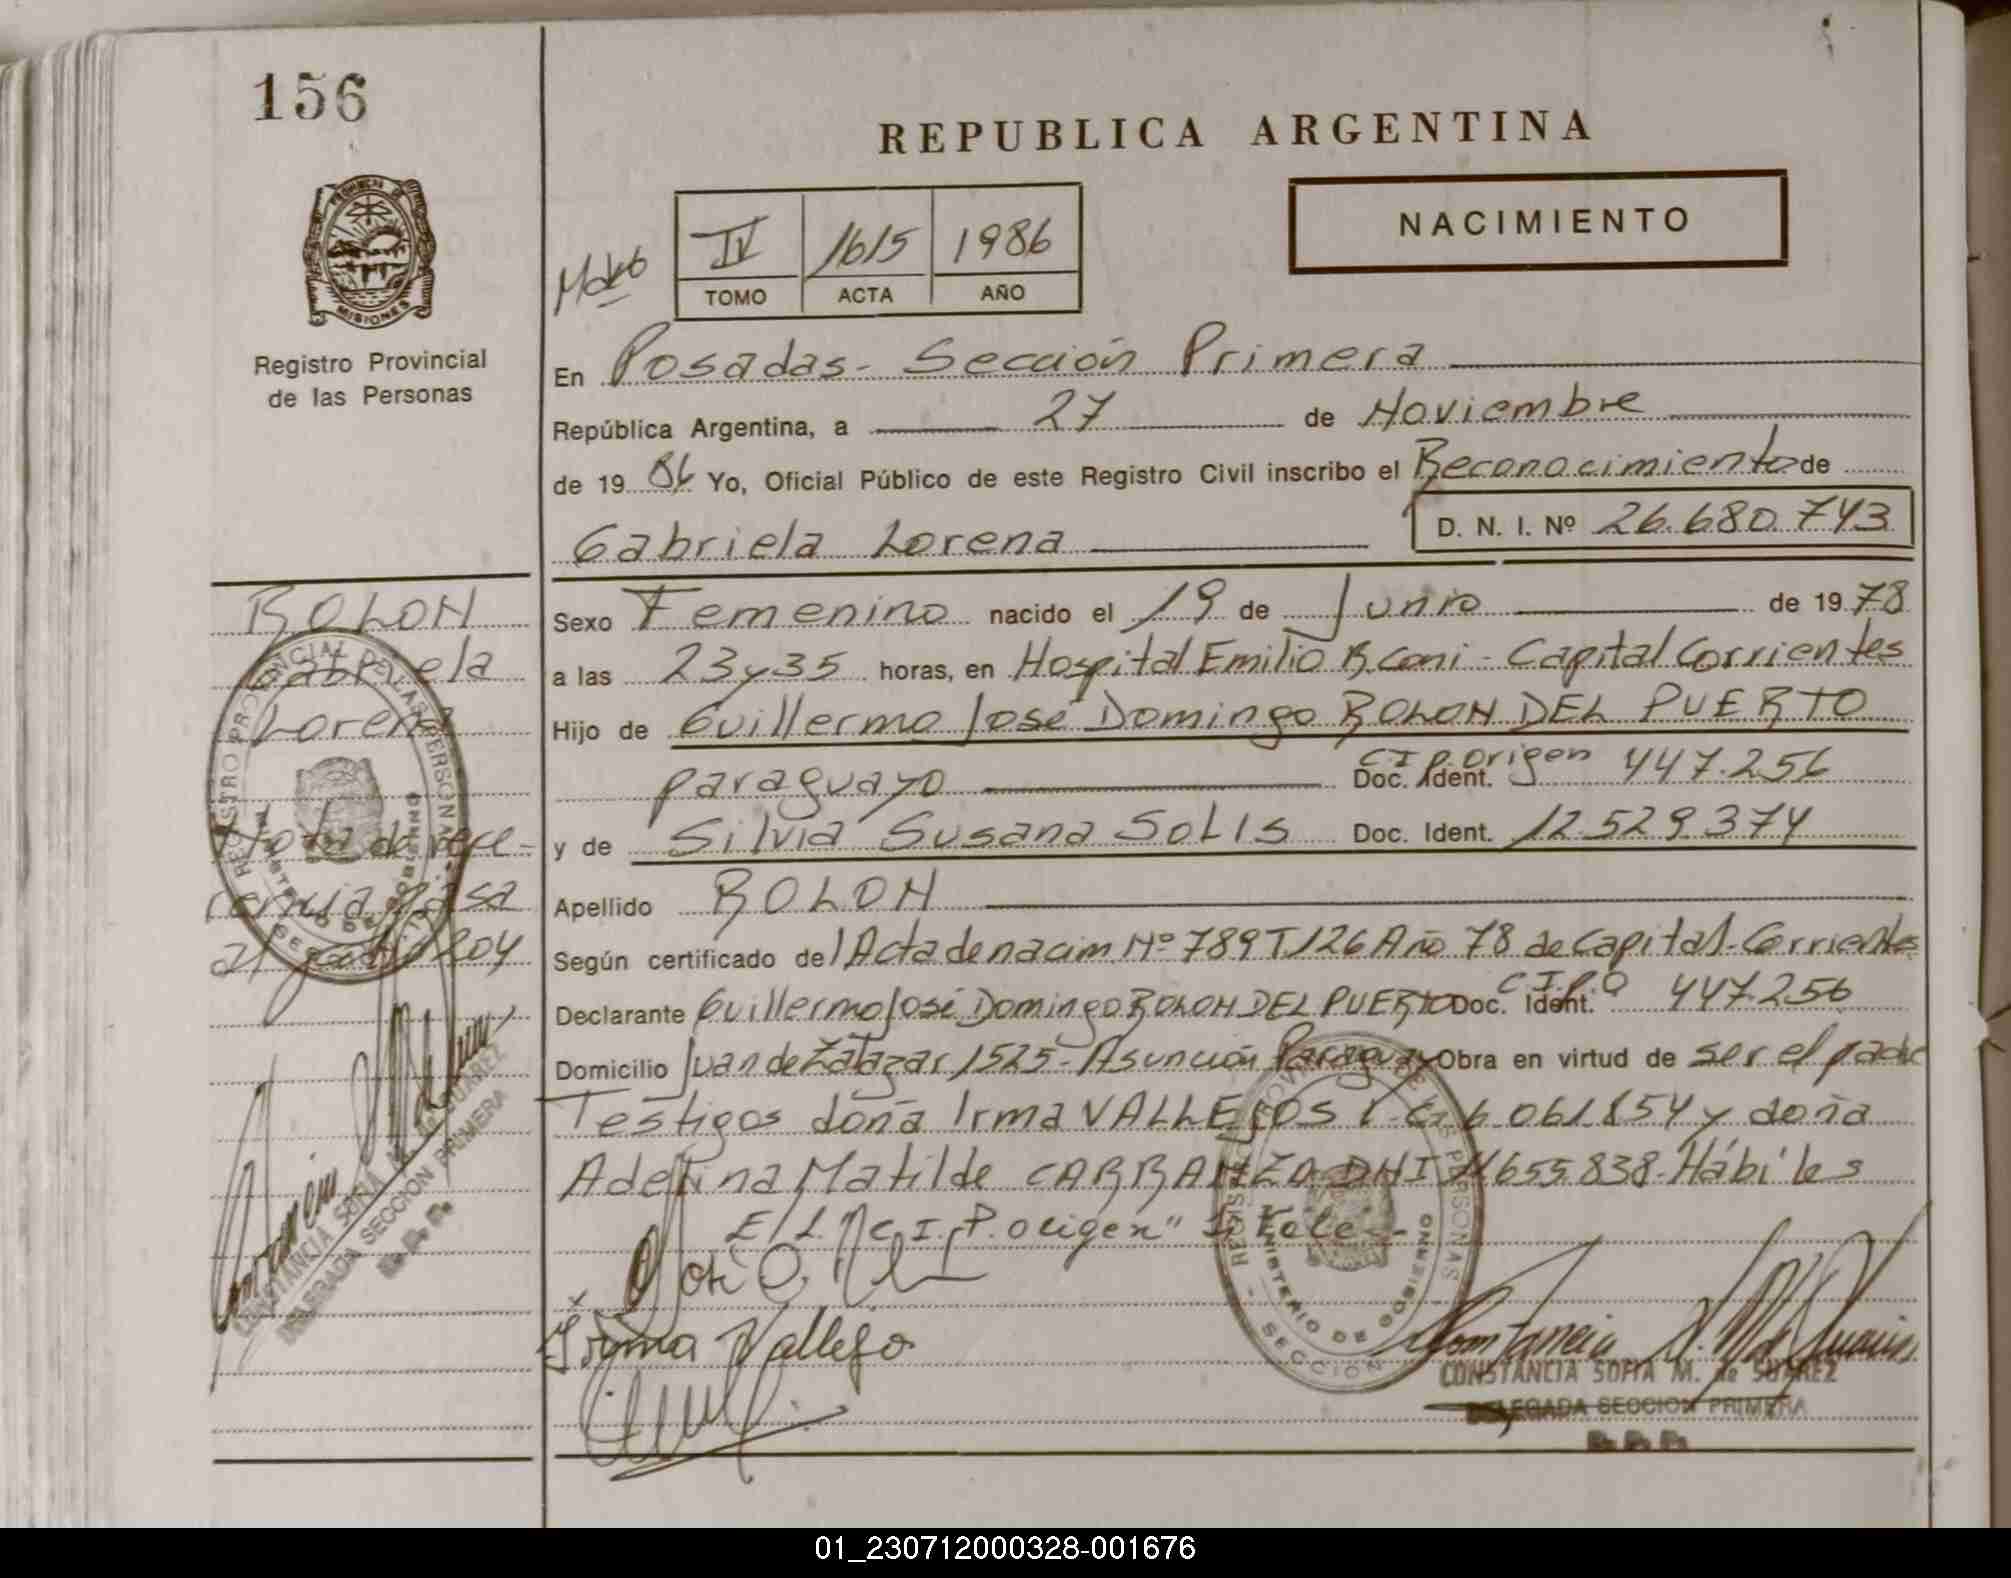 156
REPUBLICA ARGENTINA
NACIMIENTO
PROVINCIA DE
MISIONES
Registro Provincial
de las Personas
IV 1615 1986
TOMO ACTA AÑO
En Posadas - Sección Primera
República Argentina, a 27 de Noviembre
de 19 86 Yo, Oficial Público de este Registro Civil inscribo el Reconocimiento de
Gabriela Lorena D. N. I. Nº 26.680.743
Sexo Femenino nacido el 19 de Junio de 19 78
a las 23 y 35 horas, en Hospital Emilio R. Coni - Capital Corrientes
Hijo de Guillermo José Domingo ROLON DEL PUERTO
paraguayo C I P. Origen Doc. Ident. 447.256
y de Silvia Susana SOLIS Doc. Ident. 12.529.374
Apellido ROLON
Según certificado del Acta de nacim Nº 789 T 126 Año 78 de Capital - Corrientes
Declarante Guillermo José Domingo ROLON DEL PUERTO Doc. Ident. C.I.P.O 447.256
Domicilio Juan de Zalazar 1525 - Asunción Paraguay Obra en virtud de ser el padre
Testigos doña Irma VALLEJOS L.C. 6.061.854 y doña
Adelina Matilde CARRANZA DNI 11.655.838 - Hábiles
E/L. "C I. P. origen" Vale -
Irma Vallejo
CONSTANCIA SOFIA M. de SUAREZ
DELEGADA SECCION PRIMERA
R. P. P.
ROLON
Gabriela
Lorena
Nota de refe-
rencia pasa
al folio 204
REGISTRO PROVINCIAL DE LAS PERSONAS
MINISTERIO DE GOBIERNO
CONSTANCIA SOFIA M. de SUAREZ
DELEGADA SECCION PRIMERA
R. P. P.
REGISTRO PROVINCIAL DE LAS PERSONAS
MINISTERIO DE GOBIERNO
SECCION
01_230712000328-001676